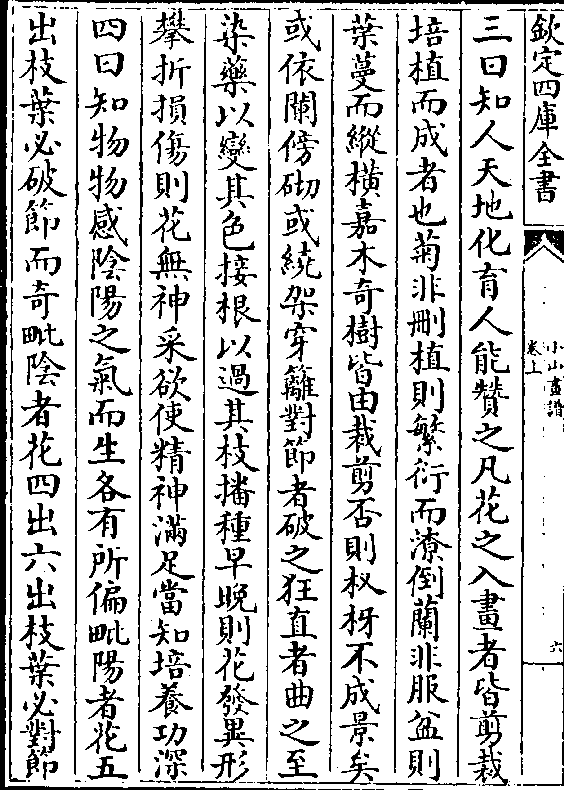 欽定四庫全書
小山畫譜
卷上
六
三曰知人天地化育人能贊之凡花之入畫者皆剪裁
培植而成者也菊非刪植則繁衍而潦倒蘭非服盆則
葉蔓而縱橫嘉木奇樹皆由裁剪否則杈枒不成景矣
或依闌傍砌或繞架穿籬對節者破之狂直者曲之至
染藥以變其色接根以過其枝播種早晚則花發異形
攀折損傷則花無神采欲使精神滿足當知培養功深
四曰知物物感陰陽之氣而生各有所偏毗陽者花五
出枝葉必破節而奇毗陰者花四出六出枝葉必對節